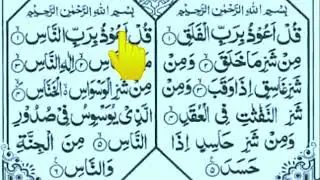 بِسْمِ اللهِ الرَّحْمٰنِ الرَّحِيْمِ
قُلْ اَعُوْذُ بِرَبِّ الْفَلَقِ ۝١
مِنْ شَرِّ مَا خَلَقَ ۝٢ وَمِنْ
شَرِّ غَاسِقٍ اِذَا وَقَبَ ۝٣ وَمِنْ
شَرِّ النَّفّٰثٰتِ فِى الْعُقَدِ ۝٤
وَمِنْ شَرِّ حَاسِدٍ اِذَا
حَسَدَ ۝٥
بِسْمِ اللهِ الرَّحْمٰنِ الرَّحِيْمِ
قُلْ اَعُوْذُ بِرَبِّ النَّاسِ ۝١
اِلٰهِ النَّاسِ ۝٣
مِنْ شَرِّ الْوَسْوَاسِ الْخَنَّاسِ ۝٤
الَّذِىْ يُوَسْوِسُ فِىْ صُدُوْرِ
النَّاسِ ۝٥ مِنَ الْجِنَّةِ
وَالنَّاسِ ۝٦